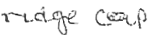 ridge camp